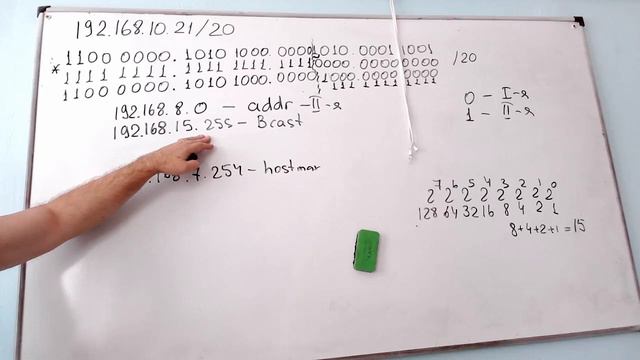 192.168.10.21/20
1100 0000. 1010 1000. 0000 1010. 0001 1001
* 1111 1111. 1111 1111. 1111 0000. 0000 0000 /20
1100 0000. 1010 1000. 0000 1000. 1111 1111
192.168.8.0 – addr – II-я
192.168.15.255 – Bcast
.7.254 – hostmax
0 – I-я
1 – II-я
2⁷ 2⁶ 2⁵ 2⁴ 2³ 2² 2¹ 2⁰
128 64 32 16 8 4 2 1
8+4+2+1=15